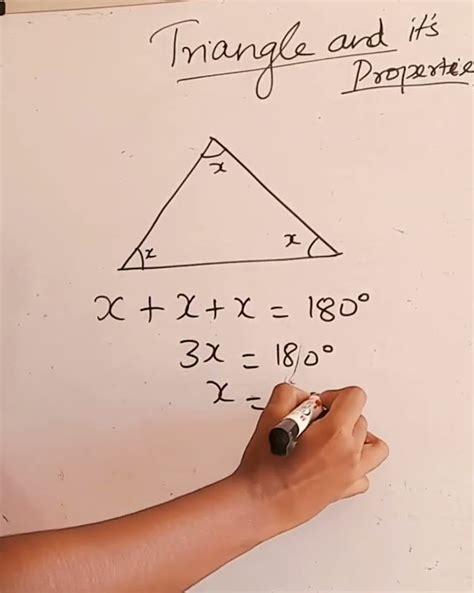 Triangle and it's
Propertie
x
x x
x + x + x = 180°
3x = 180°
x =